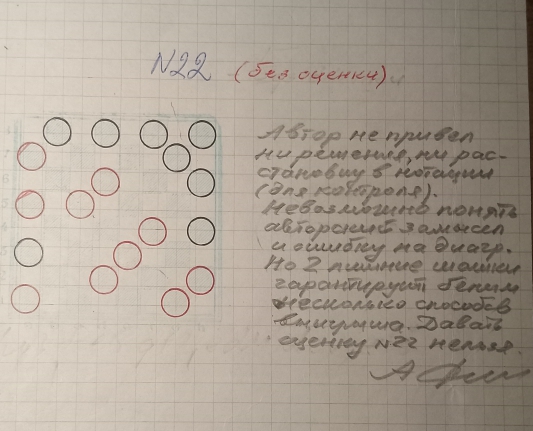 N22 (без оценки)
Автор не привёл
ни решения, ни рас-
становку в нотации
(для контроля).
Невозможно понять
авторский замысел
и ошибку на диагр.
Но 2 лишние шашки
гарантируют белым
несколько способов
выигрыша. Давать
оценку N22 нельзя.